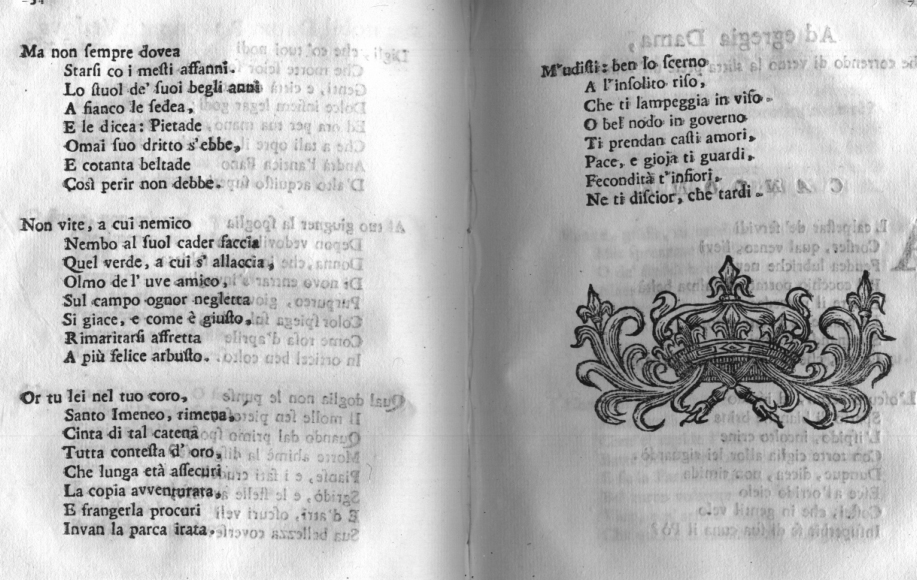 Ma non ſempre dovea
Starſi co i meſti affanni.
Lo ſtuol de' ſuoi begli anni
A fianco le ſedea,
E le dicea: Pietade
Omai ſuo dritto s'ebbe,
E cotanta beltade
Così perir non debbe.
Non vite, a cui nemico
Nembo al ſuol cader faccia
Quel verde, a cui s' allaccia,
Olmo de l' uve amico,
Sul campo ognor negletta
Si giace, e come è giuſto,
Rimaritarſi affretta
A più felice arbuſto.
Or tu lei nel tuo coro,
Santo Imeneo, rimena,
Cinta di tal catena
Tutta conteſta d' oro,
Che lunga età aſſecuri
La copia avventurata,
E frangerla procuri
Invan la parca irata.
M'udiſti: ben lo ſcerno
A l'inſolito riſo,
Che ti lampeggia in viſo.
O bel nodo in governo
Ti prendan caſti amori,
Pace, e gioja ti guardi,
Fecondità t'infiori,
Ne ti diſcior, che tardi.